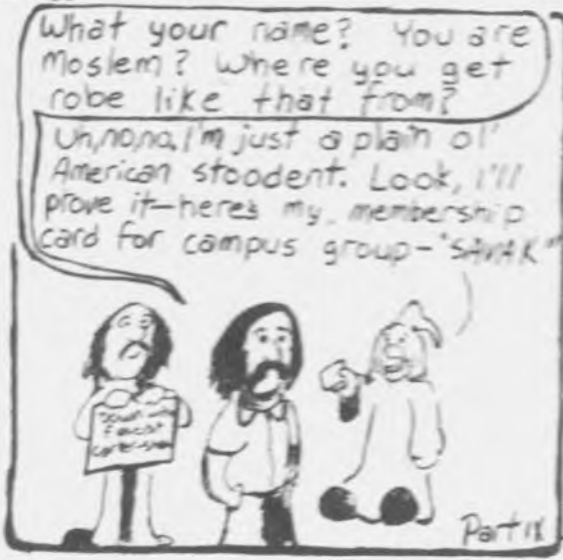 What your name? You are
Moslem? Where you get
robe like that from?
Uh,no,no, I'm just a plain ol'
American stoodent. Look, I'll
prove it—here's my membership
card for campus group—"SAVAK"
Down with
Fascist
Carter-Shah
Part IX